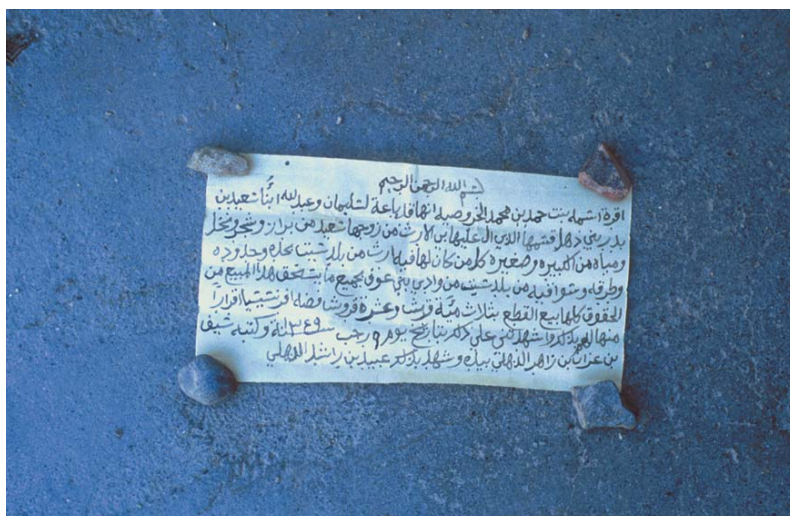 بسم الله الرحمن الرحيم
اقرة اسميه بنت حمد بن محمد الخروصيه انها قد باعة لسليمان وعبدالله ابنا سعيد بن
بدر بني ذهل قسمها الذي ال عليها بي الارث من زوجها سعيد من برار وشجر ونخل
ومياه من كبيره وصغيره كل من كان لها فيه ارث من بلد شيت بحده وحدوده
وطرقه وسواقيه من بلد شيت من وادي بني عوف بجميع ما يستحق هذا المبيع من
الحقوق كلها بيع القطع بثلاث مئية قرشا وعشرة قروش فضه افرنسيسيا اقرارا
منها بذلك واشهدتني على ذلك بتاريخ يوم ٩ رجب سنة ١٣٤٩ وكتبه شيف
بن عزان بن زاهر الذهلي بيده وشهد بذلك عبيد بن راشد الذهلي